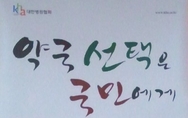 대한병원협회
약국 선택은
국민에게